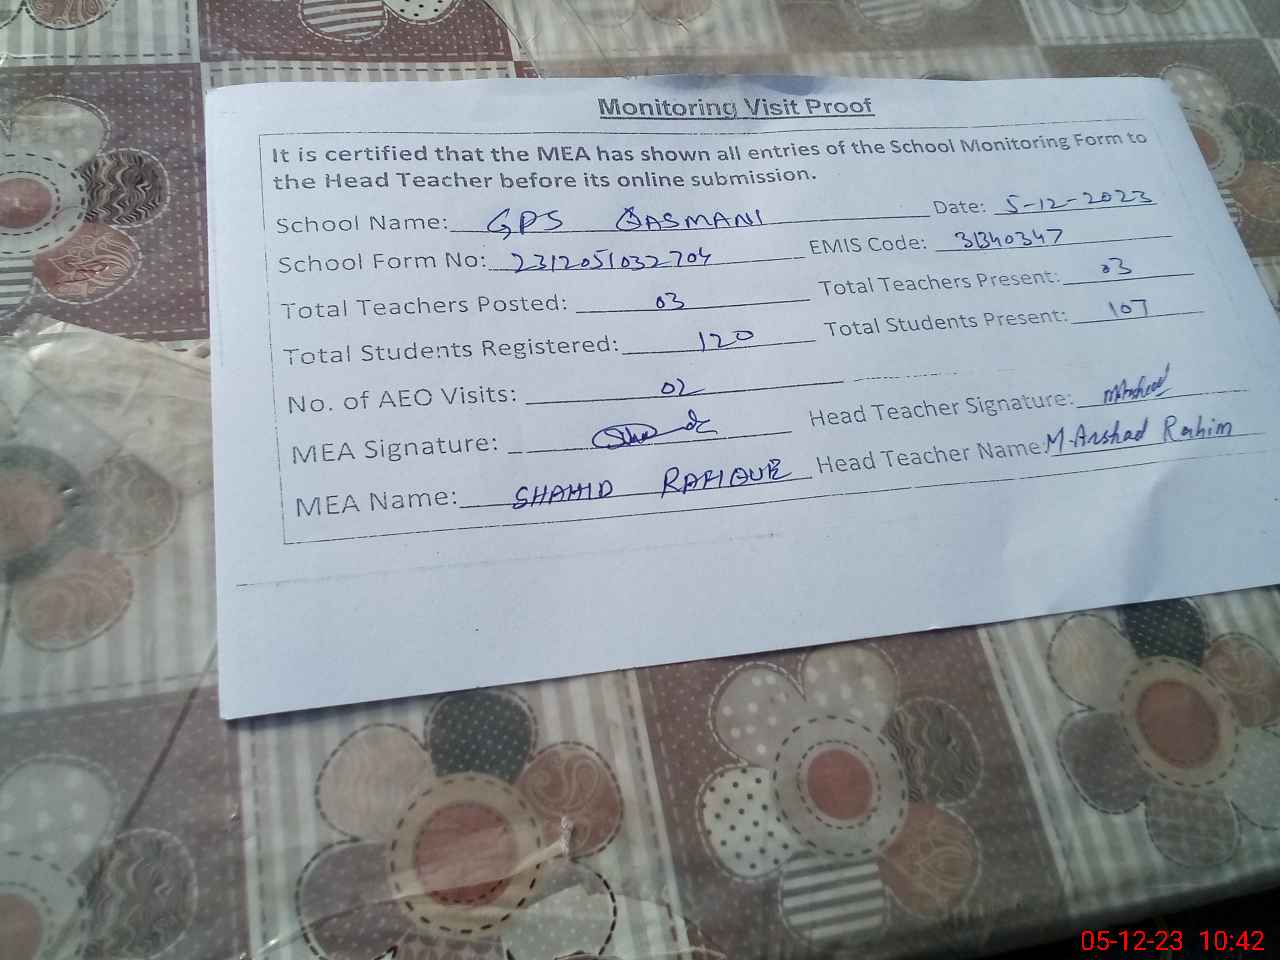 Monitoring Visit Proof
It is certified that the MEA has shown all entries of the School Monitoring Form to
the Head Teacher before its online submission.
School Name: GPS QASMANI Date: 5-12-2023
School Form No: 2312051032704 EMIS Code: 31340347
Total Teachers Posted: 03 Total Teachers Present: 03
Total Students Registered: 120 Total Students Present: 107
No. of AEO Visits: 02
MEA Signature: Head Teacher Signature:
MEA Name: SHAHID RAFIQUE Head Teacher Name: M. Arshad Rahim
05-12-23 10:42